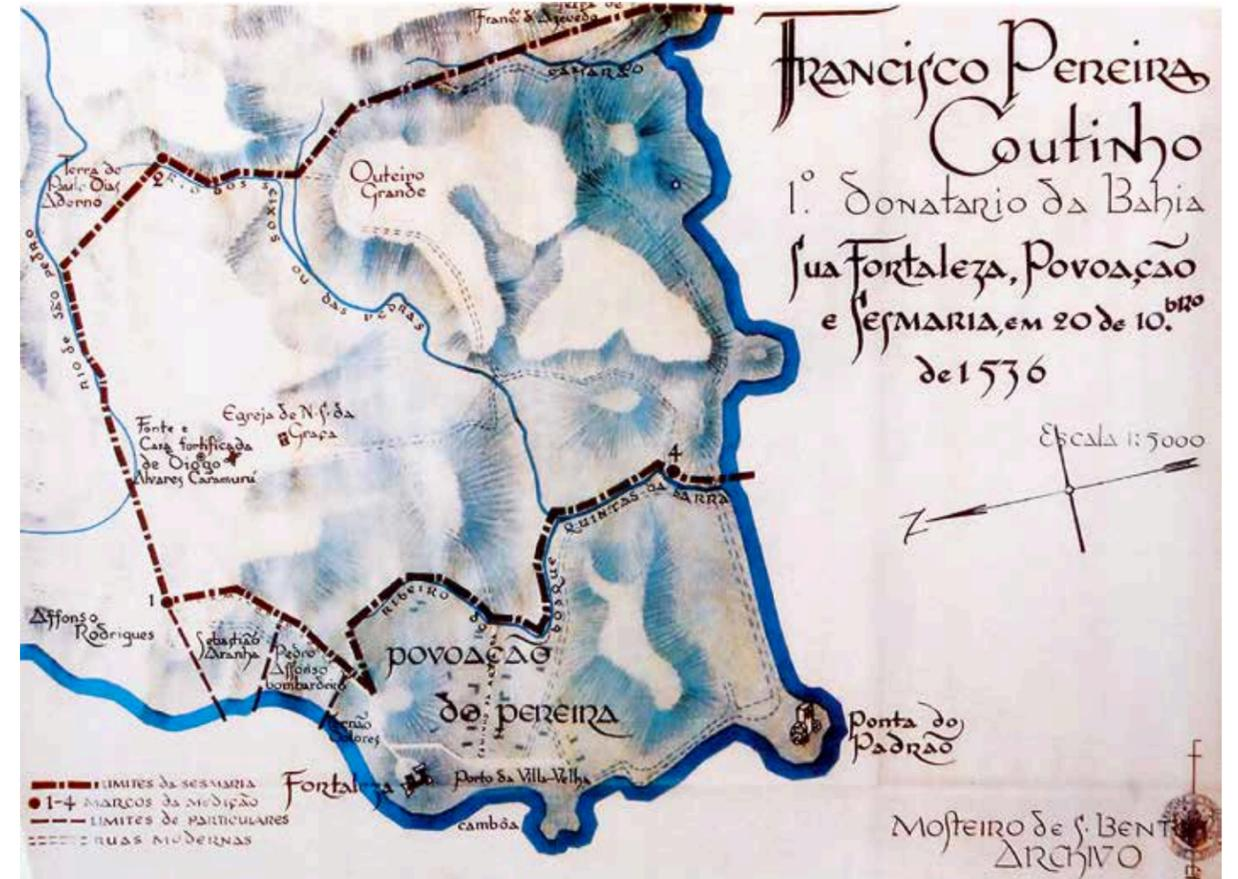 Francisco Pereira
Coutinho
1.º Donatario da Bahia
Sua Fortaleza, Povoação
e Sesmaria, em 20 de 10.bro
de 1536
Escala 1:5000
N
Franco. d'Azevedo
Camarão
Outeiro
Grande
Terra de
Paulo Dias
Adorno
2
Rio dos Seixos ou das Pedras
Rio de São Pedro
Egreja de N. S. da
Graça
Fonte e
Casa fortificada
de Diogo
Alvares Caramurú
4
Quintas da Barra
1
Affonso
Rodrigues
Sebastião
Aranha
Pedro
Affonso
bombardeiro
Ribeiro do Bosque
Povoação
do Pereira
Ponta do
Padrão
Fortaleza
Porto da Villa-Velha
cambôa
Limites da Sesmaria
1-4 Marcos da Medição
Limites de Particulares
Ruas Modernas
Mosteiro de S. Bento
Archivo